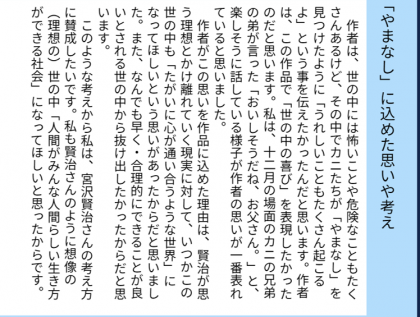 「やまなし」に込めた思いや考え
作者は、世の中には怖いことや危険なこともたく
さんあるけど、その中でカニたちが「やまなし」を
見つけたように「うれしいこともたくさん起こる
よ」という事を伝えたかったんだと思います。作者
は、この作品で「世の中の喜び」を表現したかった
のだと思います。私は、十二月の場面のカニの兄弟
の弟が言った「おいしそうだね、お父さん。」と、
楽しそうに話している様子が作者の思いが一番表れ
ていると思いました。
作者がこの思いを作品に込めた理由は、賢治が思
う理想とかけ離れていく現実に対して、いつかこの
世の中も「たがいに心が通い合うような世界」に
なってほしいという思いがあったからだと思いまし
た。また、なんでも早く・合理的にできることが良
いとされる世の中から抜け出したかったからだと思
います。
このような考えから私は、宮沢賢治さんの考え方
に賛成したいです。私も賢治さんのように想像の
（理想の）世の中「人間がみんな人間らしい生き方
ができる社会」になってほしいと思ったからです。